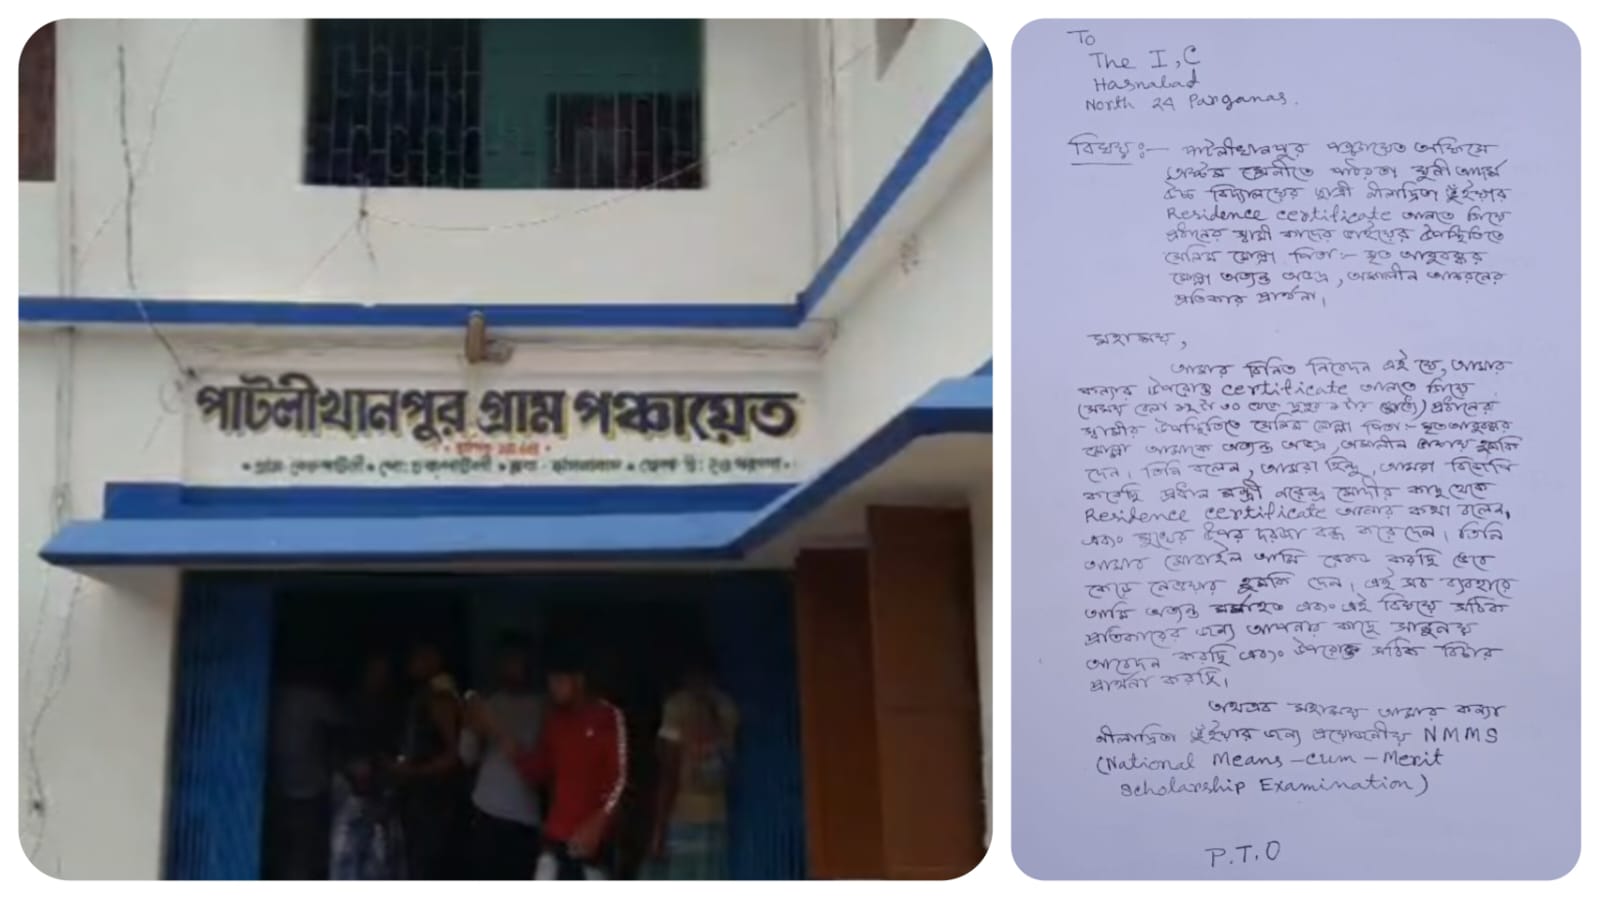 পাটলীখানপুর গ্রাম পঞ্চায়েত
To
The I,C
Hasnabad
North 24 Parganas.
বিষয়ঃ- পাটলীখানপুর পঞ্চায়েত অফিসে
অষ্টম শ্রেনীতে পাঠরতা মুনী আদর্শ
উচ্চ বিদ্যালয়ের ছাত্রী নীলাদ্রিতা ভুঁইয়ার
Residence certificate আনতে গিয়ে
প্রধানের স্বামী কাদের ভাইয়ের উপস্থিতিতে
সেলিম মোল্লা পিতা:- মৃত আবুবক্কর
মোল্লা অত্যন্ত অভদ্র, অশালীন আচরনের
প্রতিকার প্রার্থনা।
মহাশয়,
আমার বিনিত নিবেদন এই যে, আমার
কন্যার উপরোক্ত certificate আনতে গিয়ে
প্রধানের
স্বামীর উপস্থিতিতে সেলিম মোল্লা পিতা:- মৃত আবুবক্কর
মোল্লা আমাকে অত্যন্ত অভদ্র, অশালীন ভাষায় হুমকি
দেন। তিনি বলেন, আমরা হিন্দু, আমরা বিজেপি
করেছি প্রধান মন্ত্রী নরেন্দ্র মোদীর কাছ থেকে
Residence certificate আনার কথা বলেন,
এবং মুখের উপর দরজা বন্ধ করে দেন। তিনি
আমার মোবাইল আমি রেকর্ড করছি ভেবে
কেড়ে নেওয়ার হুমকি দেন। এই সব ব্যবহারে
আমি অত্যন্ত মর্মাহত এবং এই বিষয়ে সঠিক
প্রতিকারের জন্য আপনার কাছে সানুনয়
আবেদন করছি এবং উপরোক্ত সঠিক বিচার
প্রার্থনা করছি।
অতএব মহাশয় আমার কন্যা
নীলাদ্রিতা ভুঁইয়ার জন্য প্রয়োজনীয় NMMS
(National Means-cum-Merit
Scholarship Examination)
P.T.O